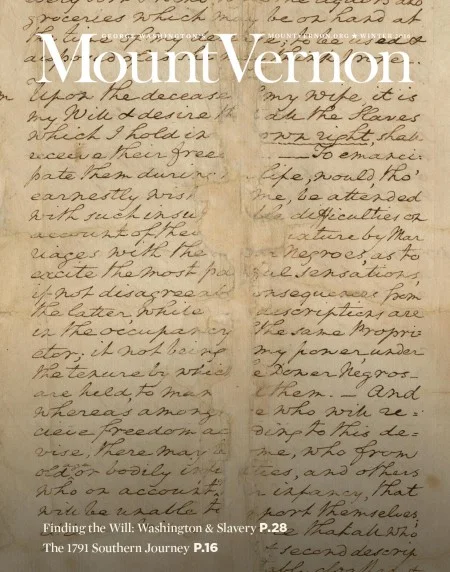 groceries which may be on hand at
GEORGE WASHINGTON'S MOUNTVERNON.ORG ★ WINTER 2016
Mount Vernon
Upon the decease my wife it is
my Will & desire th all the Slaves
which I hold in own right, shall
receive their free To emanci=
pate them during life, would, tho'
earnestly wish me, be attended
with such insu difficulties on
account of their ixture by Mar
riages with the Negroes, as to
excite the most pa ful sensations,
if not disagreeable onsequences from
the latter, while descriptions are
in the occupancy the same Proprie
etor; it not being my power, under
the tenure by which e Dower Negros
are held, to man them. — And
whereas among e who will re=
cieve freedom ac ding to this de=
vise, there may b me, who from
old age or bodily infi ties, and others
who on account r infancy, that
will be unable to port themselves,
Finding the Will: Washington & Slavery P.28
e that all who
The 1791 Southern Journey P.16
second descrip